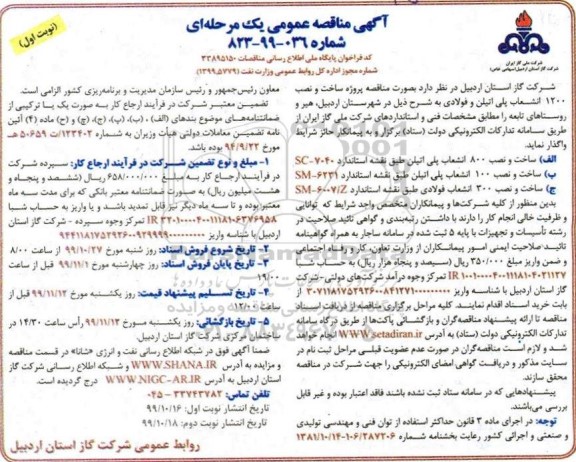 (نوبت اول)
آگهی مناقصه عمومی یک مرحله‌ای
شماره ۰۳۶-۹۹-۸۲۳
کد فراخوان پایگاه ملی اطلاع رسانی مناقصات ۳۳۸۹۵۱۵۰
شماره مجوز اداره کل روابط عمومی وزارت نفت (۱۳۹۹.۵۷۷۹)
شرکت ملی گاز ایران
شرکت گاز استان اردبیل (سهامی خاص)
شرکت گاز استان اردبیل در نظر دارد بصورت مناقصه پروژه ساخت و نصب
۱۲۰۰ انشعاب پلی اتیلن و فولادی به شرح ذیل در شهرستان اردبیل، هیر و
روستاهای تابعه را مطابق مشخصات فنی و استانداردهای شرکت ملی گاز ایران از
طریق سامانه تدارکات الکترونیکی دولت (ستاد) برگزار و به پیمانکار حائز شرایط
واگذار نماید.
الف) ساخت و نصب ۸۰۰ انشعاب پلی اتیلن طبق نقشه استاندارد SC-۷۰۴۰
ب) ساخت و نصب ۱۰۰ انشعاب پلی اتیلن طبق نقشه استاندارد SM-۶۲۳۱
ج) ساخت و نصب ۳۰۰ انشعاب فولادی طبق نقشه استاندارد SM-۶۰۰۷/Z
بدین منظور از کلیه شرکت‌ها و پیمانکاران متخصص واجد شرایط که توانایی
و ظرفیت خالی انجام کار را دارند با داشتن رتبه‌بندی و گواهی تائید صلاحیت در
رشته تأسیسات و تجهیزات با پایه ۵ ثبت شده در سامانه ساجار به همراه گواهینامه
تائید صلاحیت ایمنی امور پیمانکاران از وزارت تعاون، کار و رفاه اجتماعی
و ضمن واریز مبلغ ۳۵۰/۰۰۰ ریال (سیصد و پنجاه هزار ریال) به حساب شبا
IR ۱۰۰۱۰۰۰۰۴۰۰۱۱۱۸۱۰۴۰۲۱۱۳۷ تمرکز وجوه درآمد شرکت‌های دولتی - شرکت
گاز استان اردبیل با شناسه واریز ۳۰۷۱۱۸۱۷۵۲۹۳۶۰۰۸۴۱۳۷۱۰۰۰۰۰۰۰۰ از
بابت خرید اسناد اقدام نمایند. کلیه مراحل برگزاری مناقصه از دریافت اسناد
مناقصه تا ارائه پیشنهاد مناقصه‌گران و بازگشائی پاکت‌ها از طریق درگاه سامانه
تدارکات الکترونیکی دولت (ستاد) به آدرس www.setadiran.ir انجام خواهد
شد و لازم است مناقصه‌گران در صورت عدم عضویت قبلی مراحل ثبت نام در
سایت مذکور و دریافت گواهی امضای الکترونیکی را جهت شرکت در مناقصه
محقق سازند.
پیشنهادهایی که در سامانه ستاد ثبت نشده باشند فاقد اعتبار بوده و غیر قابل
بررسی می‌باشند.
توجه: در اجرای ماده ۳ قانون حداکثر استفاده از توان فنی و مهندسی تولیدی
و صنعتی و اجرائی کشور رعایت بخشنامه شماره ۱۰۶/۲۸۷۲۰۶-۱۳۸۱/۱۰/۱۴
معاون رئیس‌جمهور و رئیس سازمان مدیریت و برنامه‌ریزی کشور الزامی است.
تضمین معتبر شرکت در فرآیند ارجاع کار به صورت یک یا ترکیبی از
ضمانتنامه‌های موضوع بندهای (الف)، (ب)، (پ)، (ج)، (چ) و (ح) ماده (۴) آئین
نامه تضمین معاملات دولتی هیأت وزیران به شماره ۱۲۳۴۰۲/ت ۵۰۶۵۹ هـ
مورخ ۹۴/۹/۲۲ بوده باشد.
۱- مبلغ و نوع تضمین شرکت در فرآیند ارجاع کار: سپرده شرکت
در فرآیند ارجاع کار به مبلغ ۶۵۸/۰۰۰/۰۰۰ ریال (ششصد و پنجاه و
هشت میلیون ریال) به صورت ضمانتنامه معتبر بانکی که برای مدت سه ماه
معتبر بوده و تا سه ماه دیگر نیز قابل تمدید باشد و یا واریز به حساب شبا
IR ۳۲۰۱۰۰۰۰۴۰۰۱۱۱۸۱۰۶۳۷۶۹۵۸ تمرکز وجوه سپرده - شرکت گاز استان
اردبیل با شناسه واریز ۹۴۴۱۱۸۱۷۵۲۹۳۶۰۰۹۳۹۹۹۰۰۰۰۰۰۰۰
۲- تاریخ شروع فروش اسناد: روز شنبه مورخ ۹۹/۱۰/۲۷ از ساعت ۸/۰۰
۳- تاریخ پایان فروش اسناد: روز چهارشنبه مورخ ۹۹/۱۱/۱ قبل از ساعت
۱۹:۰۰
۴- تاریخ تسلیم پیشنهاد قیمت: روز یکشنبه مورخ ۹۹/۱۱/۱۲ قبل از
ساعت ۱۲/۰۰
۵- تاریخ بازگشائی: روز یکشنبه مورخ ۹۹/۱۱/۱۳ رأس ساعت ۱۴/۳۰ در
ساختمان مرکزی شرکت گاز استان اردبیل.
ضمناً آگهی فوق در شبکه اطلاع رسانی نفت و انرژی «شانا» در قسمت مناقصه
و مزایده به آدرس WWW.SHANA.IR و شبکه اطلاع رسانی شرکت گاز
استان اردبیل به آدرس WWW.NIGC-AR.IR درج گردیده است.
تلفن تماس: ۳۳۷۴۳۷۸۲ - ۰۴۵
تاریخ انتشار نوبت اول: ۹۹/۱۰/۱۶
تاریخ انتشار نوبت دوم: ۹۹/۱۰/۱۸
روابط عمومی شرکت گاز استان اردبیل